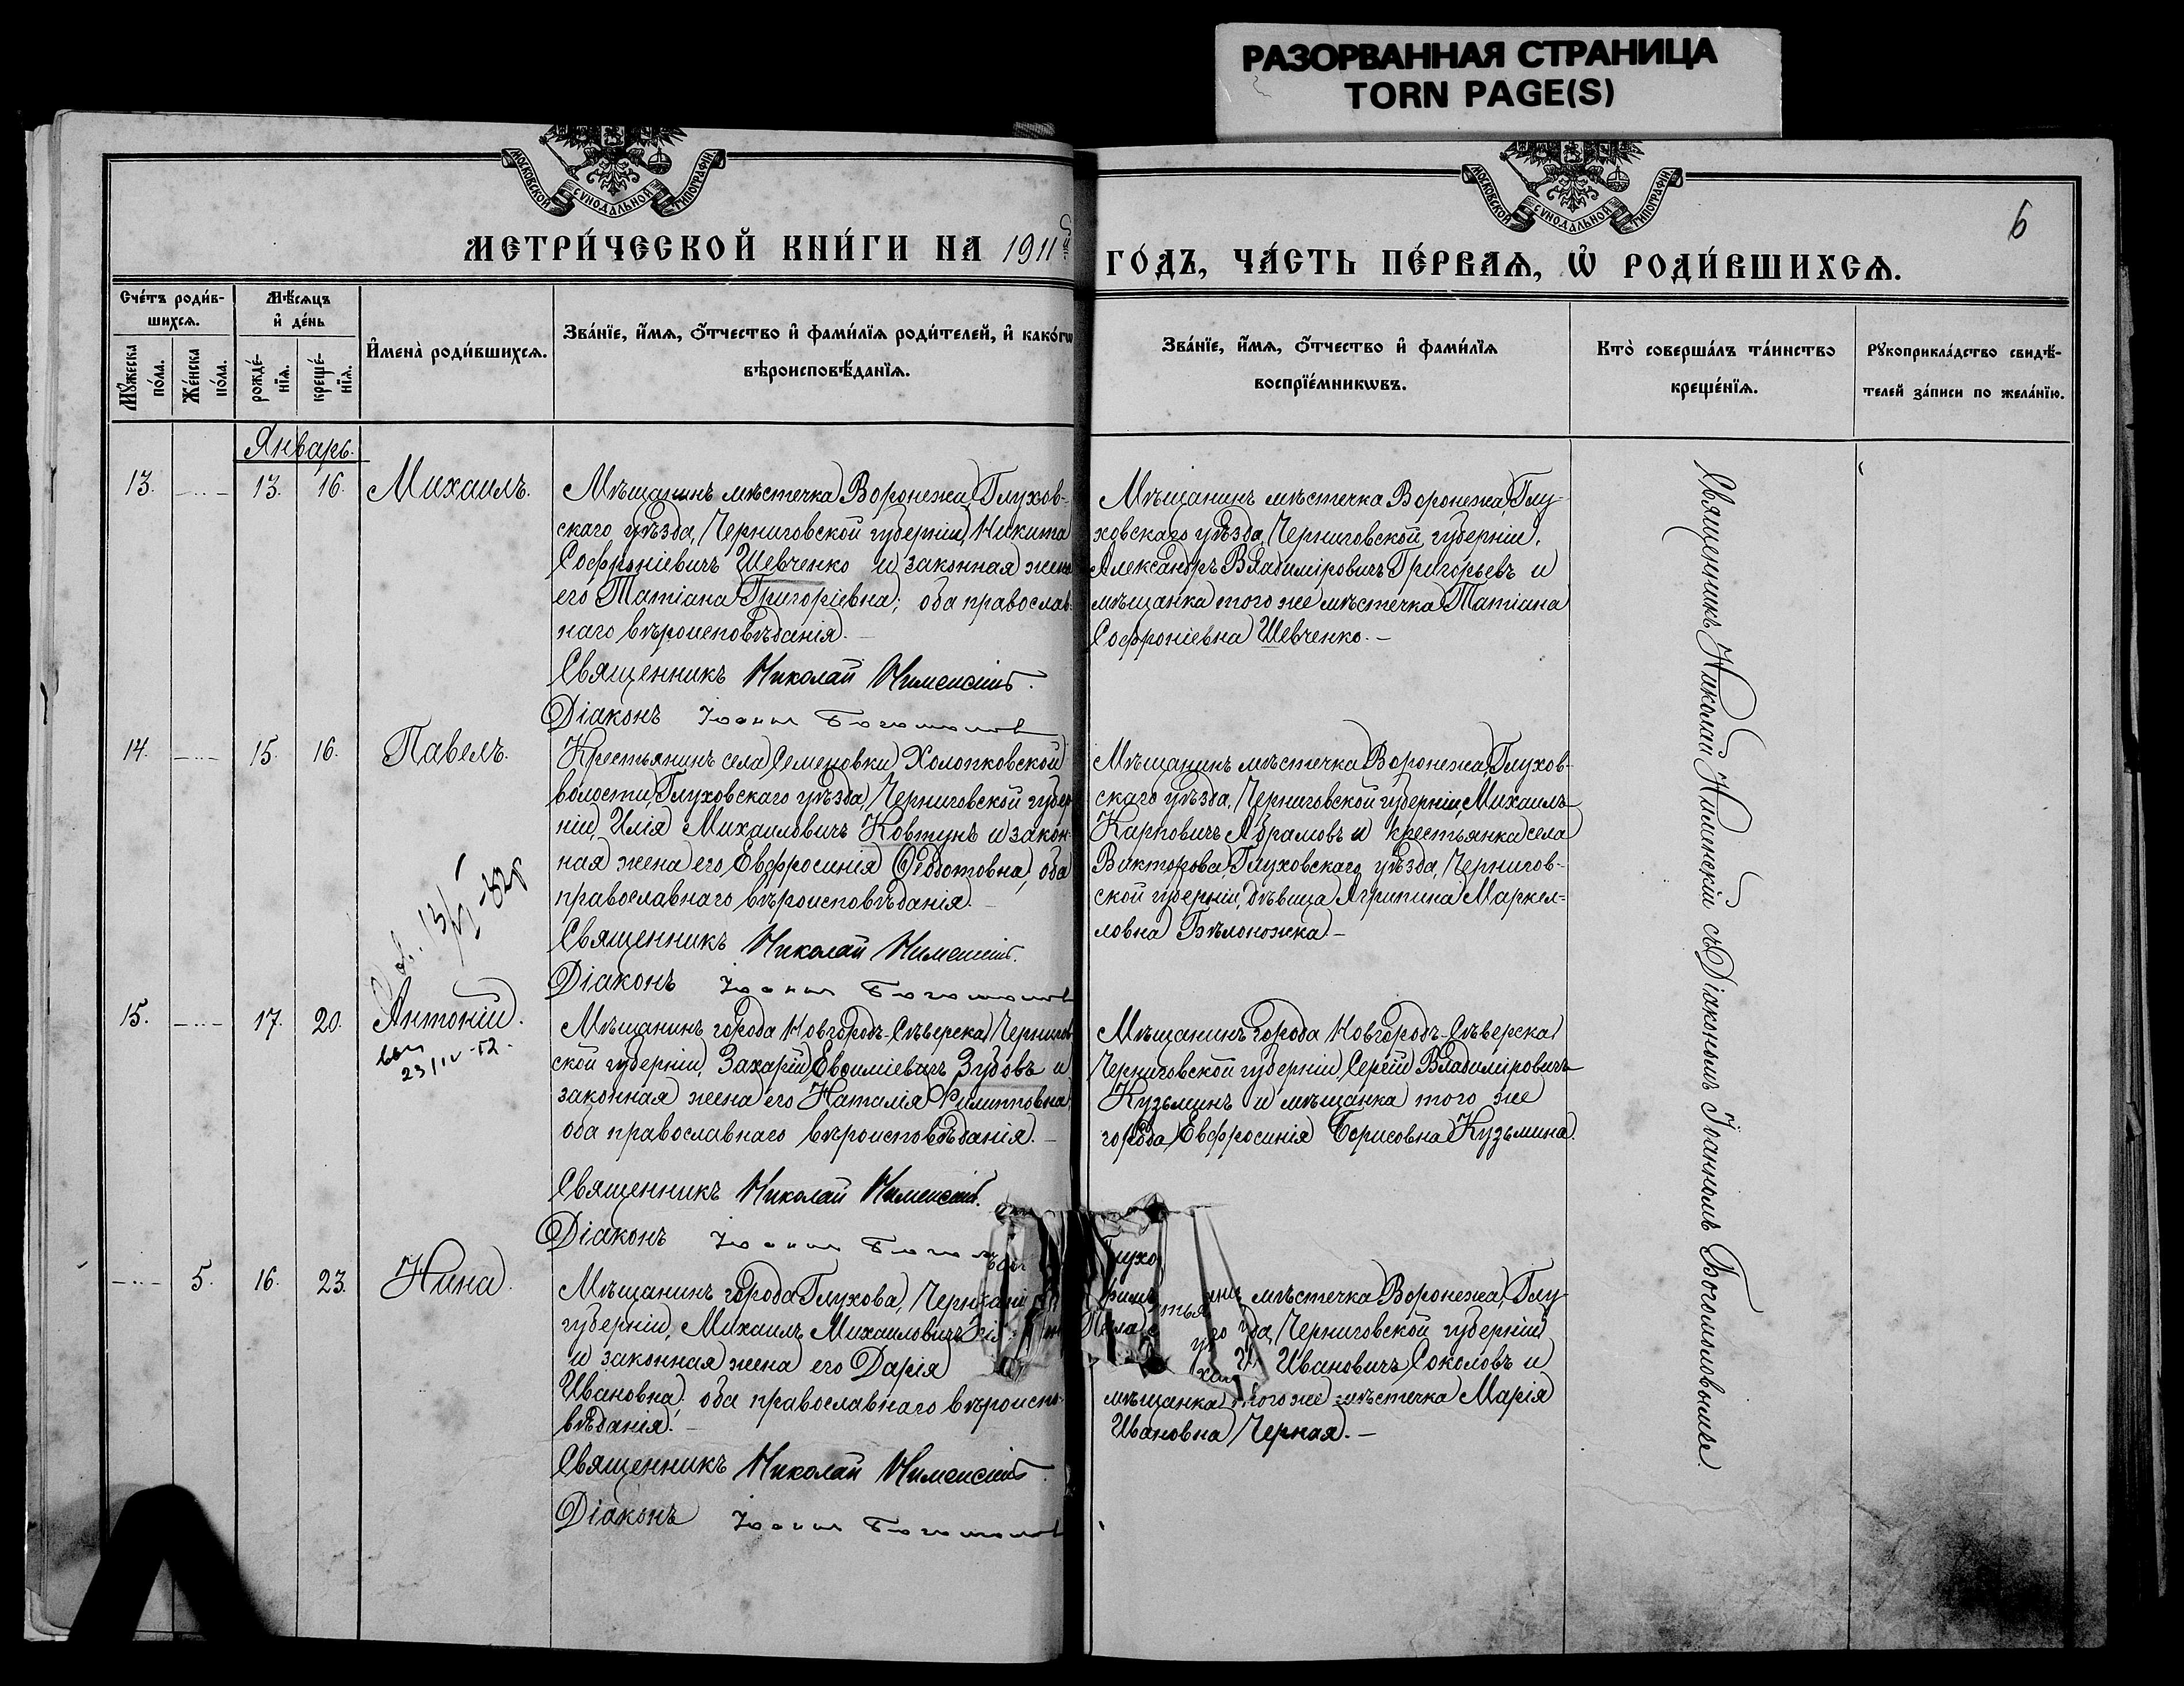 РАЗОРВАННАЯ СТРАНИЦА
TORN PAGE(S)
МОСКОВСКОЙ СѴНОДАЛЬНОЙ ТИПОГРАФІИ
МОСКОВСКОЙ СѴНОДАЛЬНОЙ ТИПОГРАФІИ
6
МЕТРИ́ЧЕСКОЙ КНИ́ГИ НА 1911й
ГО́ДЪ, ЧА́СТЬ ПЕ́РВАѦ, Ѡ҆ РОДИ́ВШИХСѦ.
Сче́тъ роди́в-
шихсѧ.
Мꙋ́жеска
по́ла.
Же́нска
по́ла.
Мѣ́сѧцъ
и҆ де́нь
рожде́-
нїѧ.
креще́-
нїѧ.
И҆мена̀ роди́вшихсѧ.
Зва́нїе, и҆́мѧ, ѻ҆́тчество и҆ фами́лїѧ роди́телей, и҆ како́гѡ
вѣроисповѣ́данїѧ.
Зва́нїе, и҆́мѧ, ѻ҆́тчество и҆ фами́лїѧ
воспрїе́мникѡвъ.
Кто̀ соверша́лъ та́инство
креще́нїѧ.
Рꙋкоприкла́дство свидѣ́-
телей за́писи по жела́нїю.
Январь.
13.
13.
16.
Михаилъ.
Мѣщанинъ мѣстечка Воронежа, Глухов-
скаго уѣзда, Черниговской губерніи, Никита
Софроніевичъ Шевченко и законная жена
его Татіана Григоріевна; оба православ-
наго вѣроисповѣданія. —
Священникъ Николай Нименскій.
Діаконъ Іоаннъ Богомолов
Мѣщанинъ мѣстечка Воронежа, Глу-
ховскаго уѣзда, Черниговской губерніи,
Александръ Владиміровичъ Григорьевъ и
мѣщанка того же мѣстечка Татіана
Софроніевна Шевченко. —
14.
15.
16.
Павелъ.
Крестьянинъ села Семеновки Холопковской
волости, Глуховскаго уѣзда, Черниговской губер-
ніи, Илія Михаиловичъ Ковтунъ и закон-
ная жена его Евфросинія Ѳеодотовна, оба
православнаго вѣроисповѣданія. —
Священникъ Николай Нименскій.
Діаконъ Іоаннъ Богомолов
Мѣщанинъ мѣстечка Воронежа, Глухов-
скаго уѣзда, Черниговской губерніи, Михаилъ
Карповичъ Абрамовъ и крестьянка села
Викторова Глуховскаго уѣзда, Чернигов-
ской губерніи, дѣвица Агрипина Маркел-
ловна Бѣлоножка. —
15.
17.
20.
Антоній.
23/IV-52.
Мѣщанинъ города Новгородъ-Сѣверска, Чернигов
ской губерніи, Захарій Евѳиміевичъ Зубовъ и
законная жена его Наталія Филипповна
оба православнаго вѣроисповѣданія. —
Священникъ Николай Нименскій.
Діаконъ Іоаннъ
Мѣщанинъ города Новгородъ-Сѣверска
Черниговской губерніи, Сергій Владиміровичъ
Кузьминъ и мѣщанка того же
города, Евфросинія Борисовна Кузьмина.
5.
16.
23.
Нина.
Мѣщанинъ города Глухова,
губерніи, Михаилъ Михаиловичъ
и законная жена его Дарія
Ивановна; оба православнаго вѣроиспо-
вѣданія. —
Священникъ Николай Нименскій.
Діаконъ Іоаннъ Богомолов
мѣстечка Воронежа, Глу-
Черниговской губерніи
Ивановичъ Соколовъ и
мѣщанка того же мѣстечка Марія
Ивановна Черная. —
Священникъ Николай Нименскій съ Діакономъ Іоанномъ Богомоловымъ